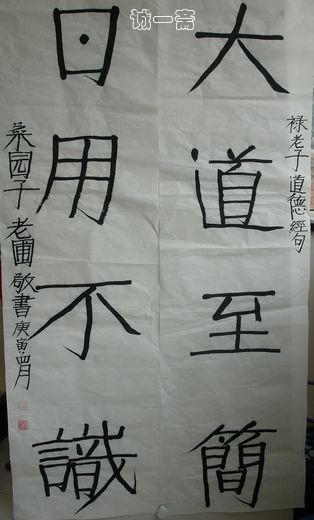 诚一斋
禄老子道德經句
大道至簡
日用不識
桑园子老圃敬書庚寅四月